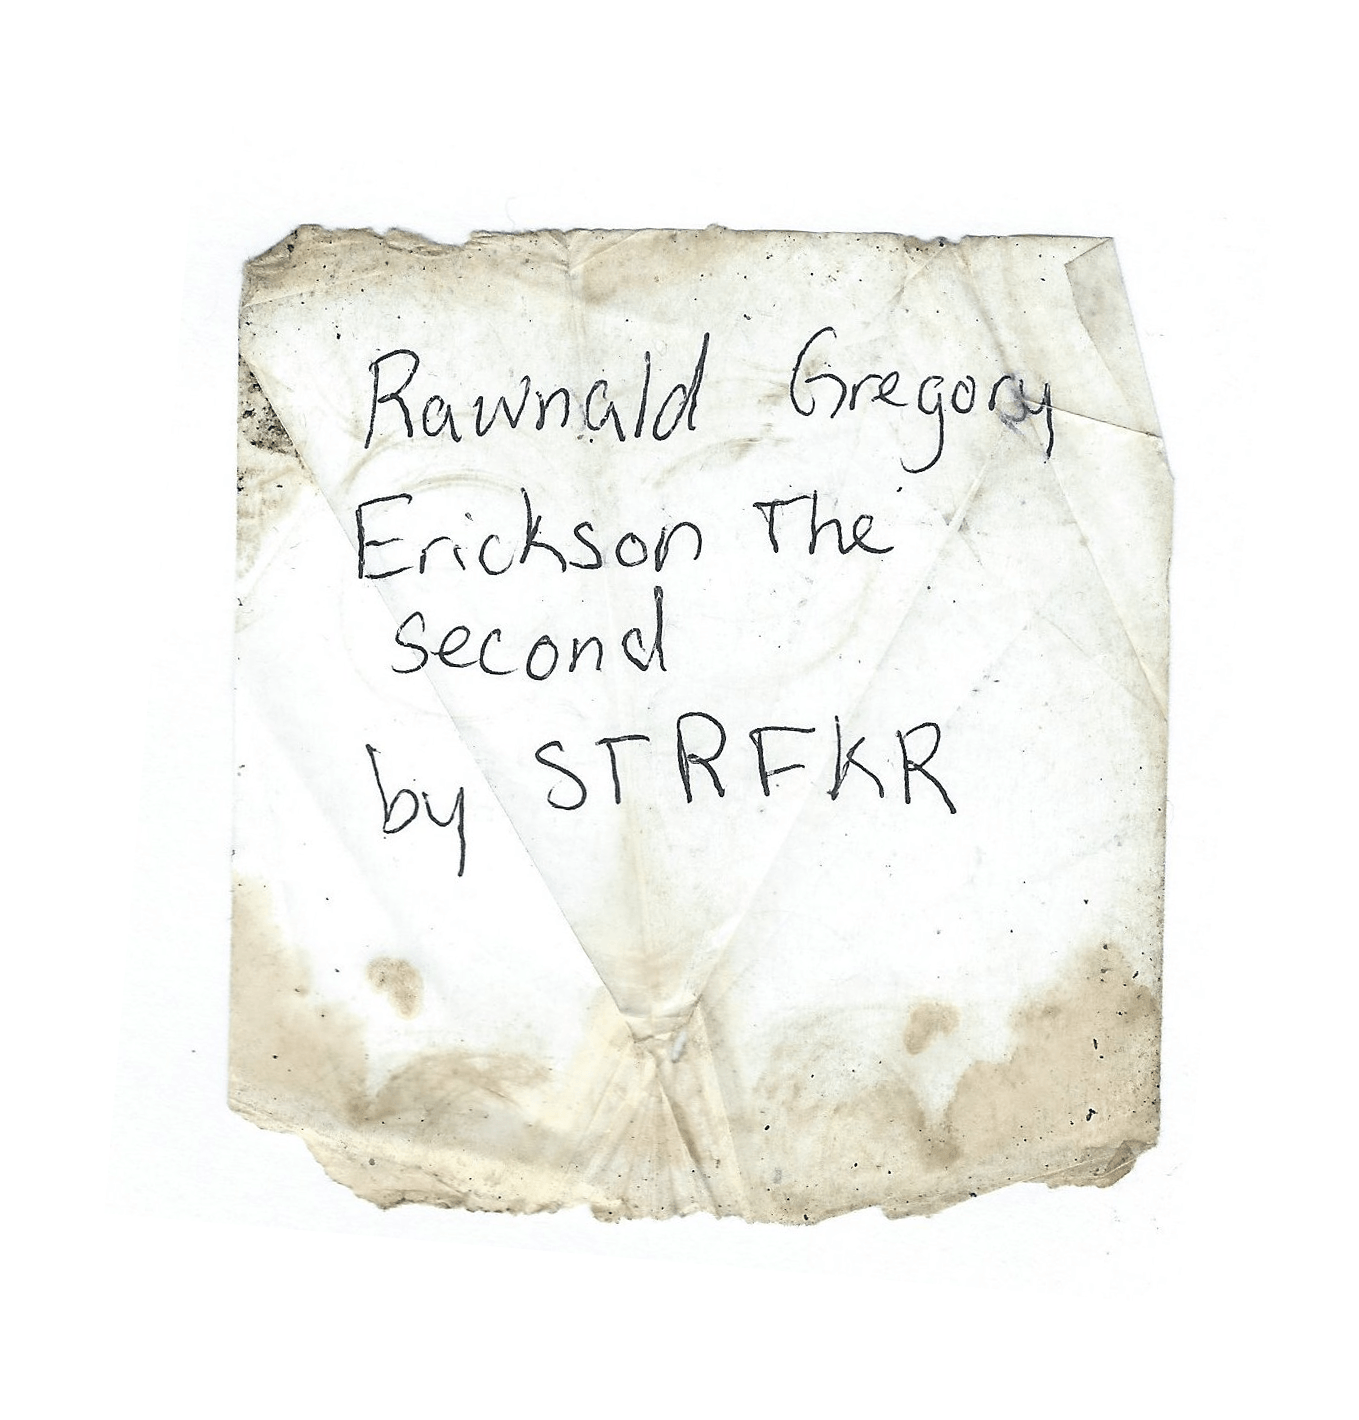 Rawnald Gregory
Erickson The
second
by STRFKR